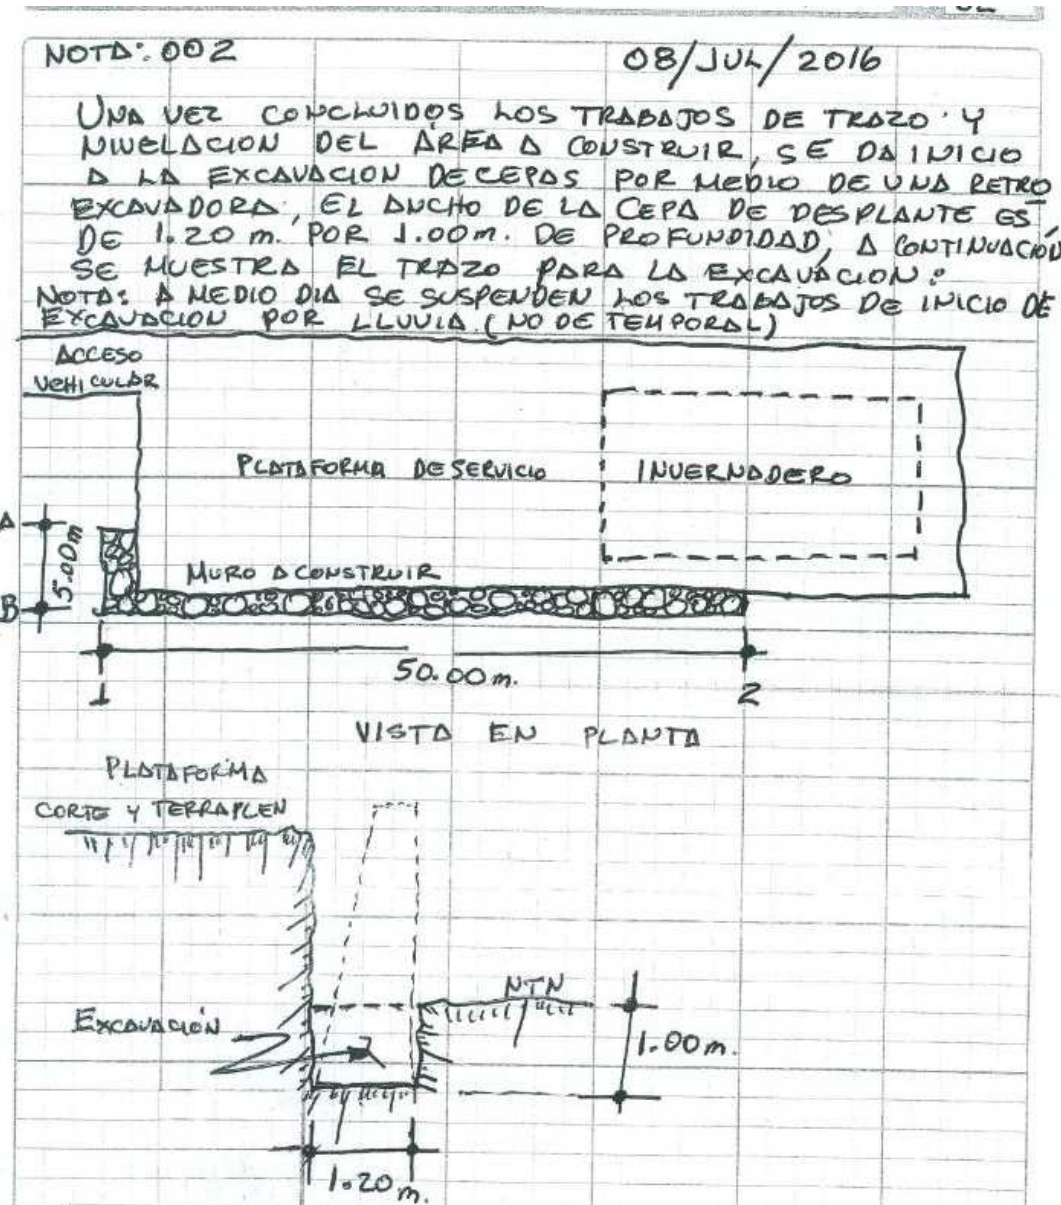 NOTA: 002
08/JUL/2016
UNA VEZ CONCLUIDOS LOS TRABAJOS DE TRAZO Y
NIVELACION DEL ÁREA A CONSTRUIR, SE DA INICIO
A LA EXCAVACION DE CEPAS POR MEDIO DE UNA RETRO
EXCAVADORA, EL ANCHO DE LA CEPA DE DESPLANTE ES
DE 1.20 m. POR 1.00 m. DE PROFUNDIDAD, A CONTINUACIÓN
SE MUESTRA EL TRAZO PARA LA EXCAVACION:
NOTA: A MEDIO DIA SE SUSPENDEN LOS TRABAJOS DE INICIO DE
EXCAVACION POR LLUVIA. (NO DE TEMPORAL)
ACCESO
VEHICULAR
PLATAFORMA DE SERVICIO
INVERNADERO
A
5.00m
MURO A CONSTRUIR
B
50.00 m.
1
2
VISTA EN PLANTA
PLATAFORMA
CORTE Y TERRAPLEN
NTN
EXCAVACIÓN
1.00 m.
1.20 m.